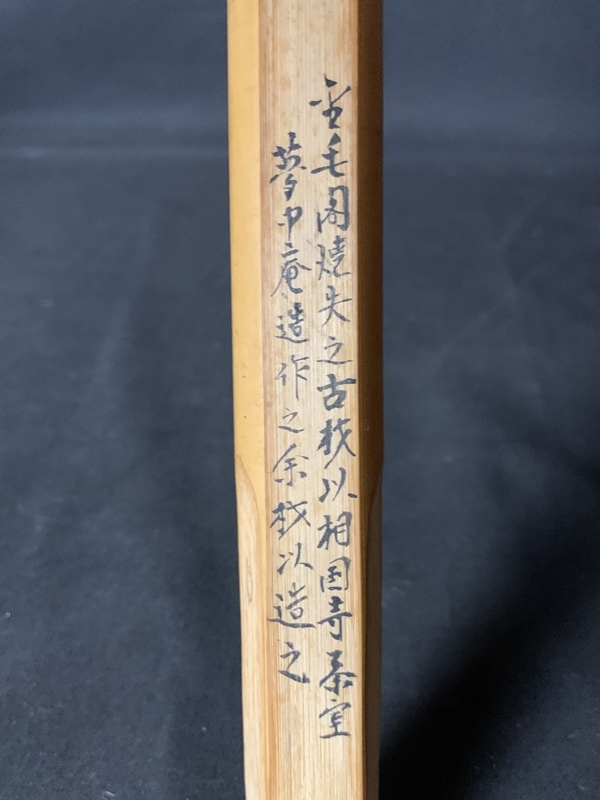 金毛閣焼失之古材以相国寺茶室
夢中庵造作之余材以造之